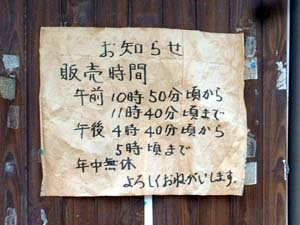 お知らせ
販売時間
午前10時50分頃から
11時40分頃まで
午後4時40分頃から
5時頃まで
年中無休
よろしくおねがいします.